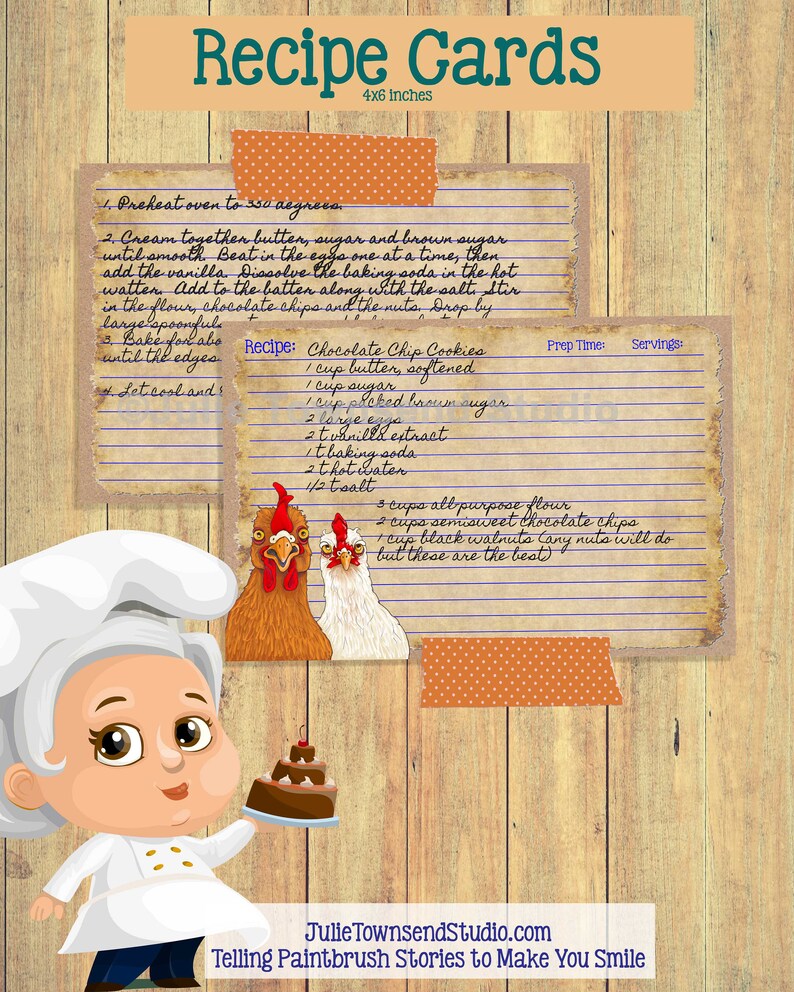 Recipe Cards
4x6 inches
1. Preheat oven to 350 degrees.
2. Cream together butter, sugar and brown sugar
until smooth. Beat in the eggs one at a time, then
add the vanilla. Dissolve the baking soda in the hot
watter. Add to the batter along with the salt. Stir
in the flour, chocolate chips and the nuts. Drop by
large spoonfuls
3. Bake for abo
until the edges
4. Let cool and
Recipe: Chocolate Chip Cookies Prep Time: Servings:
1 cup butter, softened
1 cup sugar
1 cup packed brown sugar
2 large eggs
2 t vanilla extract
1 t baking soda
2 t hot water
1/2 t salt
3 cups all purpose flour
2 cups semisweet chocolate chips
1 cup black walnuts (any nuts will do
but these are the best)
©Julie Townsend Studio
JulieTownsendStudio.com
Telling Paintbrush Stories to Make You Smile